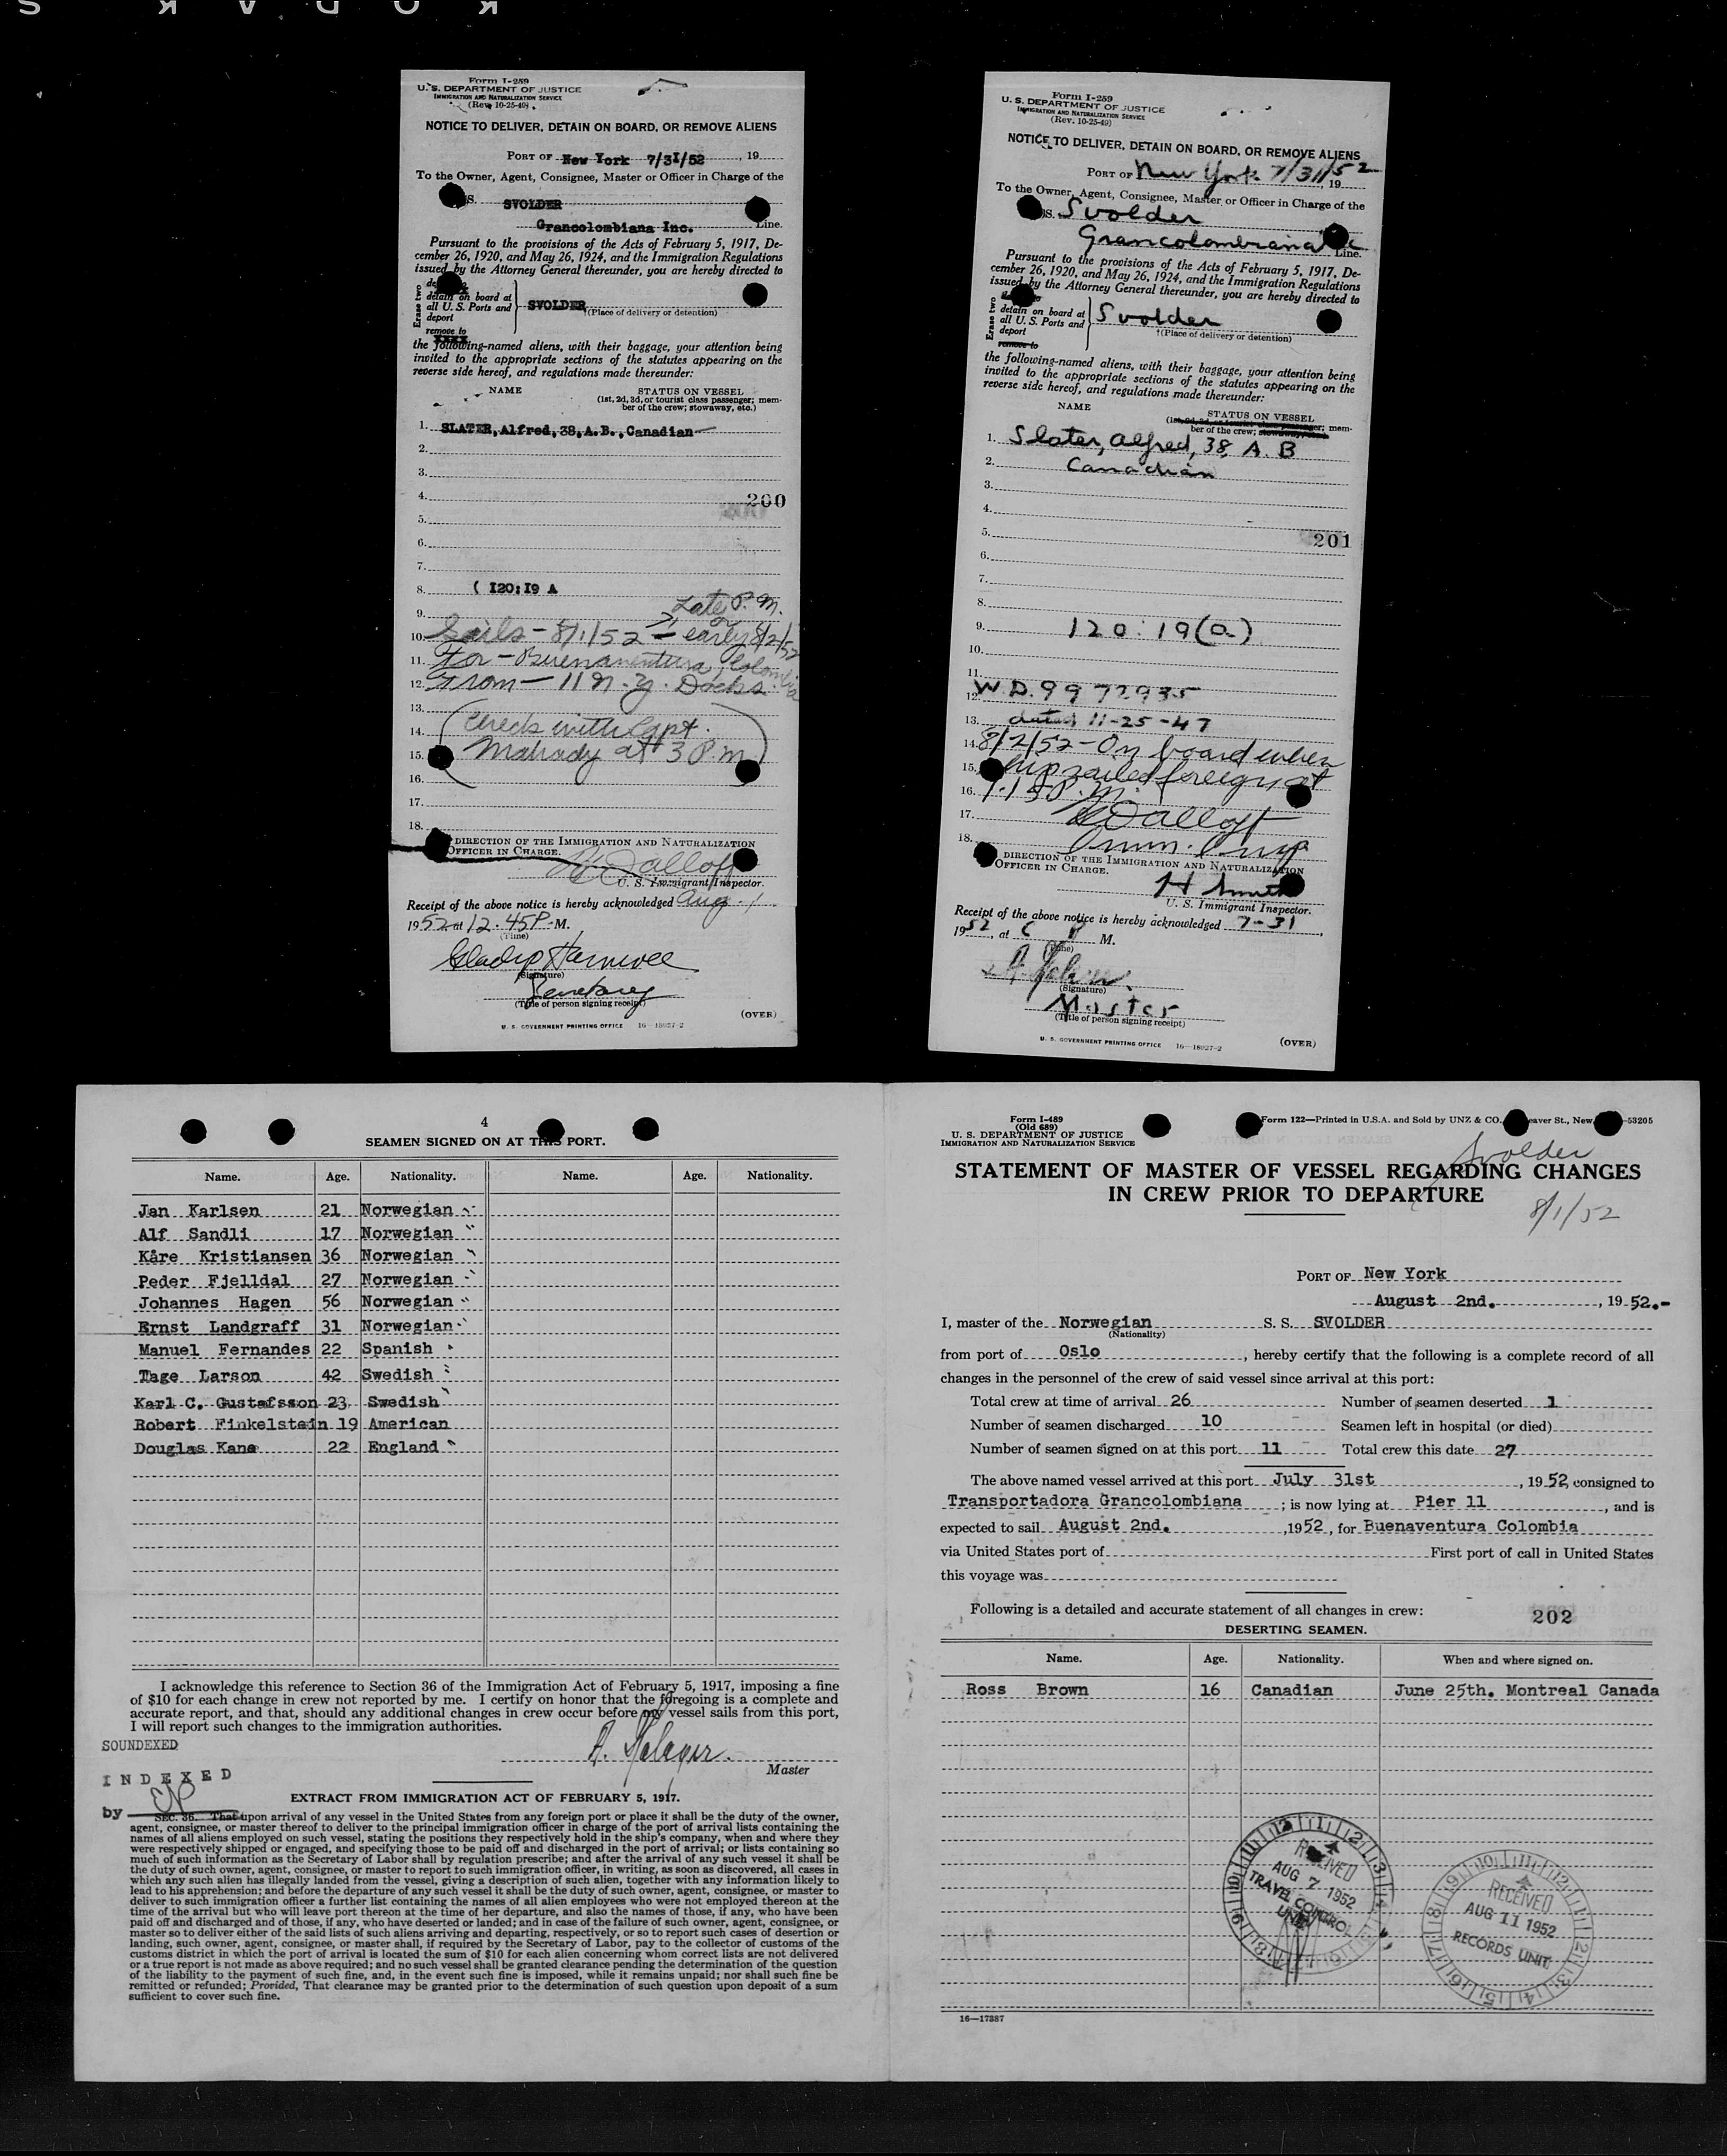 KODAK S
Form I-259
U. S. DEPARTMENT OF JUSTICE
IMMIGRATION AND NATURALIZATION SERVICE
(Rev. 10-25-49)
NOTICE TO DELIVER, DETAIN ON BOARD, OR REMOVE ALIENS
PORT OF New York 7/31/52, 19
To the Owner, Agent, Consignee, Master or Officer in Charge of the
S. SVOLDER
Grancolombiana Inc. Line.
Pursuant to the provisions of the Acts of February 5, 1917, De-
cember 26, 1920, and May 26, 1924, and the Immigration Regulations
issued by the Attorney General thereunder, you are hereby directed to
Erase two
detain on board at
all U. S. Ports and
deport
remove to
SVOLDER
†(Place of delivery or detention)
the following-named aliens, with their baggage, your attention being
invited to the appropriate sections of the statutes appearing on the
reverse side hereof, and regulations made thereunder:
NAME STATUS ON VESSEL
(1st, 2d, 3d, or tourist class passenger; mem-
ber of the crew; stowaway, etc.)
1. SLATER, Alfred, 38, A.B., Canadian
2.
3.
4. 200
5.
6.
7.
8. ( I20:I9 A
9. Late P.M.
or
10. Sails - 8/1/52 - early 8/2/52
11. For - Buenaventura, Colombia
12. From - 11 N.Y. Docks
13.
14. (Check with Capt.
15. Mahady at 3 P.M.)
16.
17.
18.
DIRECTION OF THE IMMIGRATION AND NATURALIZATION
OFFICER IN CHARGE.
U. S. Immigrant Inspector.
Receipt of the above notice is hereby acknowledged Aug. 1
1952 at 12.45 P. M.
(Time)
Gladys
(Signature)
Secretary
(Title of person signing receipt)
(OVER)
U. S. GOVERNMENT PRINTING OFFICE 16—18027-2
Form I-259
U. S. DEPARTMENT OF JUSTICE
IMMIGRATION AND NATURALIZATION SERVICE
(Rev. 10-25-49)
NOTICE TO DELIVER, DETAIN ON BOARD, OR REMOVE ALIENS
PORT OF New York 7/31/52, 19
To the Owner, Agent, Consignee, Master or Officer in Charge of the
S. Svolder
Grancolombiana Line.
Pursuant to the provisions of the Acts of February 5, 1917, De-
cember 26, 1920, and May 26, 1924, and the Immigration Regulations
issued by the Attorney General thereunder, you are hereby directed to
Erase two
detain on board at
all U. S. Ports and
deport
remove to
Svolder
†(Place of delivery or detention)
the following-named aliens, with their baggage, your attention being
invited to the appropriate sections of the statutes appearing on the
reverse side hereof, and regulations made thereunder:
NAME STATUS ON VESSEL
(1st, 2d, 3d, or tourist class passenger; mem-
ber of the crew; stowaway, etc.)
1. Slater, Alfred, 38, A. B
2. Canadian
3.
4.
5. 201
6.
7.
8.
9. 120:19(a)
10.
11.
12. W.D. 9972935
13. dated 11-25-47
14. 8/2/52 - On board when
15. ship sailed foreign at
16. 1.15 P.M.
17.
18. Imm. Insp
DIRECTION OF THE IMMIGRATION AND NATURALIZATION
OFFICER IN CHARGE.
H Smith
U. S. Immigrant Inspector.
Receipt of the above notice is hereby acknowledged 7-31,
1952, at 6 P M.
(Time)
(Signature)
Master
(Title of person signing receipt)
U. S. GOVERNMENT PRINTING OFFICE 16—18027-2 (OVER)
4
SEAMEN SIGNED ON AT THIS PORT.
Name. Age. Nationality. Name. Age. Nationality.
Jan Karlsen 21 Norwegian
Alf Sandli 17 Norwegian
Kåre Kristiansen 36 Norwegian
Peder Fjelldal 27 Norwegian
Johannes Hagen 56 Norwegian
Ernst Landgraff 31 Norwegian
Manuel Fernandes 22 Spanish
Tage Larson 42 Swedish
Karl C. Gustafsson 23 Swedish
Robert Finkelstein 19 American
Douglas Kane 22 England
I acknowledge this reference to Section 36 of the Immigration Act of February 5, 1917, imposing a fine
of $10 for each change in crew not reported by me. I certify on honor that the foregoing is a complete and
accurate report, and that, should any additional changes in crew occur before my vessel sails from this port,
I will report such changes to the immigration authorities.
SOUNDEXED
Master
INDEXED
by
EXTRACT FROM IMMIGRATION ACT OF FEBRUARY 5, 1917.
SEC. 36. That upon arrival of any vessel in the United States from any foreign port or place it shall be the duty of the owner,
agent, consignee, or master thereof to deliver to the principal immigration officer in charge of the port of arrival lists containing the
names of all aliens employed on such vessel, stating the positions they respectively hold in the ship's company, when and where they
were respectively shipped or engaged, and specifying those to be paid off and discharged in the port of arrival; or lists containing so
much of such information as the Secretary of Labor shall by regulation prescribe; and after the arrival of any such vessel it shall be
the duty of such owner, agent, consignee, or master to report to such immigration officer, in writing, as soon as discovered, all cases in
which any such alien has illegally landed from the vessel, giving a description of such alien, together with any information likely to
lead to his apprehension; and before the departure of any such vessel it shall be the duty of such owner, agent, consignee, or master to
deliver to such immigration officer a further list containing the names of all alien employees who were not employed thereon at the
time of the arrival but who will leave port thereon at the time of her departure, and also the names of those, if any, who have been
paid off and discharged and of those, if any, who have deserted or landed; and in case of the failure of such owner, agent, consignee, or
master so to deliver either of the said lists of such aliens arriving and departing, respectively, or so to report such cases of desertion or
landing, such owner, agent, consignee, or master shall, if required by the Secretary of Labor, pay to the collector of customs of the
customs district in which the port of arrival is located the sum of $10 for each alien concerning whom correct lists are not delivered
or a true report is not made as above required; and no such vessel shall be granted clearance pending the determination of the question
of the liability to the payment of such fine, and, in the event such fine is imposed, while it remains unpaid; nor shall such fine be
remitted or refunded; Provided, That clearance may be granted prior to the determination of such question upon deposit of a sum
sufficient to cover such fine.
Form I-489
(Old 689)
U. S. DEPARTMENT OF JUSTICE
IMMIGRATION AND NATURALIZATION SERVICE
Form 122—Printed in U.S.A. and Sold by UNZ & CO. eaver St., New -53205
Svolder
STATEMENT OF MASTER OF VESSEL REGARDING CHANGES
IN CREW PRIOR TO DEPARTURE
8/1/52
PORT OF New York
August 2nd., 1952.-
I, master of the Norwegian S. S. SVOLDER
(Nationality)
from port of Oslo, hereby certify that the following is a complete record of all
changes in the personnel of the crew of said vessel since arrival at this port:
Total crew at time of arrival 26 Number of seamen deserted 1
Number of seamen discharged 10 Seamen left in hospital (or died)
Number of seamen signed on at this port 11 Total crew this date 27
The above named vessel arrived at this port July 31st, 1952, consigned to
Transportadora Grancolombiana; is now lying at Pier 11, and is
expected to sail August 2nd., 1952, for Buenaventura Colombia
via United States port of First port of call in United States
this voyage was
Following is a detailed and accurate statement of all changes in crew:
202
DESERTING SEAMEN.
Name. Age. Nationality. When and where signed on.
Ross Brown 16 Canadian June 25th. Montreal Canada
RECEIVED
AUG 7 1952
TRAVEL CONTROL
UNIT
RECEIVED
AUG 11 1952
RECORDS UNIT
16—17387